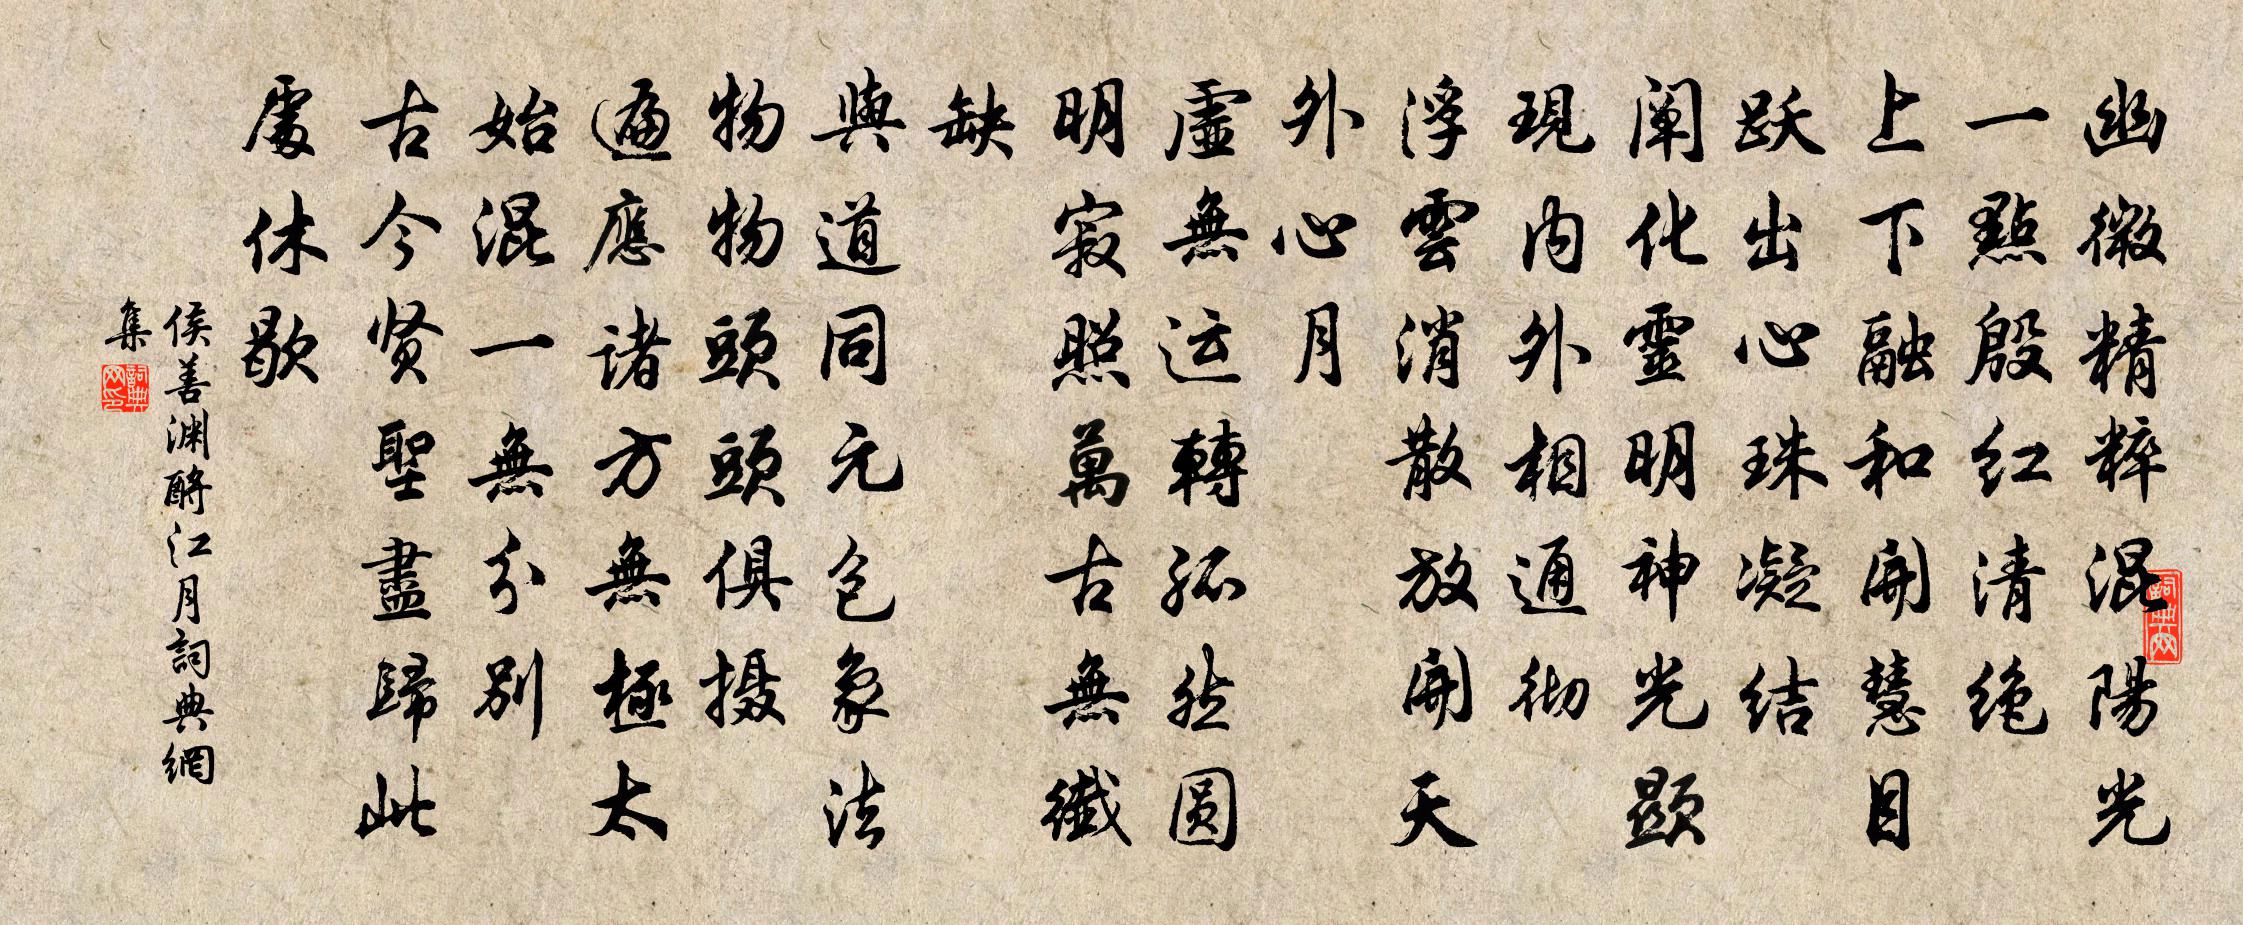 幽微精粹混陽光
一點殷红清绝
上下融和開慧目
跃出心珠凝结
阐化靈明神光顕
現内外相通彻
浮雲消散放開天
外心月
虛無运轉孤然圆
明寂照萬古無纖
缺
與道同元包象法
物物頭頭俱摄
遍應诸方無極太
始混一無分别
古今贤聖盡歸此
處休歇
侯善渊酹江月詞典網
集
詞典网
詞典网印